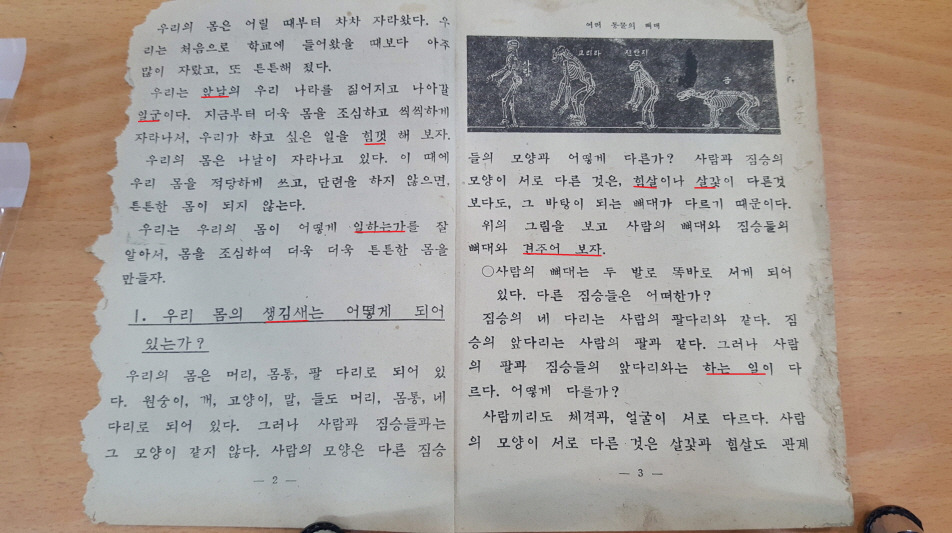 우리의 몸은 어릴 때부터 차차 자라왔다. 우
리는 처음으로 학교에 들어왔을 때보다 아주
많이 자랐고, 또 튼튼해 졌다.
우리는 앞날의 우리 나라를 짊어지고 나아갈
일군이다. 지금부터 더욱 몸을 조심하고 씩씩하게
자라나서, 우리가 하고 싶은 일을 힘껏 해 보자.
우리의 몸은 나날이 자라나고 있다. 이 때에
우리 몸을 적당하게 쓰고, 단련을 하지 않으면,
튼튼한 몸이 되지 않는다.
우리는 우리의 몸이 어떻게 일하는가를 잘
알아서, 몸을 조심하여 더욱 더욱 튼튼한 몸을
만들자.
1. 우리 몸의 생김새는 어떻게 되어
있는가?
우리의 몸은 머리, 몸통, 팔 다리로 되어 있
다. 원숭이, 개, 고양이, 말, 들도 머리, 몸통, 네
다리로 되어 있다. 그러나 사람과 짐승들과는
그 모양이 같지 않다. 사람의 모양은 다른 짐승
— 2 —
여러 동물의 뼈대
사람 고리라 친판지 곰
들의 모양과 어떻게 다른가? 사람과 짐승의
모양이 서로 다른 것은, 힘살이나 살갗이 다른것
보다도, 그 바탕이 되는 뼈대가 다르기 때문이다.
위의 그림을 보고 사람의 뼈대와 짐승들의
뼈대와 견주어 보자.
○사람의 뼈대는 두 발로 똑바로 서게 되어
있다. 다른 짐승들은 어떠한가?
짐승의 네 다리는 사람의 팔다리와 같다. 짐
승의 앞다리는 사람의 팔과 같다. 그러나 사람
의 팔과 짐승들의 앞다리와는 하는 일이 다
르다. 어떻게 다를가?
사람끼리도 체격과, 얼굴이 서로 다르다. 사람
의 모양이 서로 다른 것은 살갗과 힘살도 관계
— 3 —